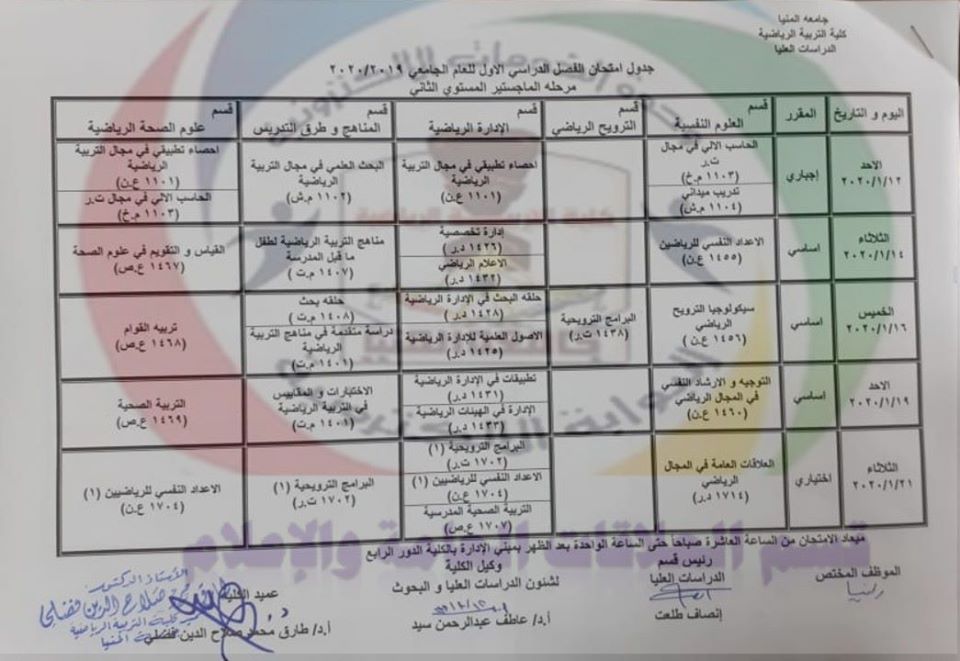 جامعه المنيا
كلية التربية الرياضية
الدراسات العليا
جدول امتحان الفصل الدراسي الاول للعام الجامعي ٢٠٢٠/٢٠١٩
مرحله الماجستير المستوي الثاني
اليوم و التاريخ
المقرر
قسم
العلوم النفسية
قسم
الترويح الرياضي
قسم
الإدارة الرياضية
قسم
المناهج و طرق التدريس
قسم
علوم الصحة الرياضية
الاحد
٢٠٢٠/١/١٢
إجباري
الحاسب الالي في مجال
ت.ر
(١١٠٣ م.خ)
تدريب ميداني
(١١٠٤ م.ش)
احصاء تطبيقي في مجال التربية
الرياضية
(١١٠١ ع.ن)
البحث العلمي في مجال التربية
الرياضية
(١١٠٢ م.ش)
احصاء تطبيقي في مجال التربية
الرياضية
(١١٠١ ع.ن)
الحاسب الالي في مجال ت.ر
(١١٠٣ م.خ)
الثلاثاء
٢٠٢٠/١/١٤
اساسي
الاعداد النفسي للرياضين
(١٤٥٥ ع.ن)
إدارة تخصصية
(١٤٢٦ د.ر)
الاعلام الرياضي
(١٤٣٢ د.ر)
مناهج التربية الرياضية لطفل
ما قبل المدرسة
(١٤٠٧ م.ت)
القياس و التقويم في علوم الصحة
(١٤٦٧ ع.ص)
الخميس
٢٠٢٠/١/١٦
اساسي
سيكولوجيا الترويح
الرياضي
(١٤٥٦ ع.ن)
البرامج الترويحية
(١٤٣٨ ت.ر)
حلقه البحث في الإدارة الرياضية
(١٤٢٨ د.ر)
الاصول العلمية للإدارة الرياضية
(١٤٢٥ د.ر)
حلقه بحث
(١٤٠٨ م.ت)
دراسة متقدمة في مناهج التربية
الرياضية
(١٤٠١ م.ت)
تربيه القوام
(١٤٦٨ ع.ص)
الاحد
٢٠٢٠/١/١٩
اساسي
التوجيه و الارشاد النفسي
في المجال الرياضي
(١٤٦٠ ع.ن)
تطبيقات في الإدارة الرياضية
(١٤٣١ د.ر)
الإدارة في الهيئات الرياضية
(١٤٣٣ د.ر)
الاختبارات و المقاييس
في التربية الرياضية
(١٤٠١ م.ت)
التربية الصحية
(١٤٦٩ ع.ص)
الثلاثاء
٢٠٢٠/١/٢١
اختياري
العلاقات العامة في المجال
الرياضي
(١٧١٤ د.ر)
البرامج الترويحية (١)
(١٧٠٢ ت.ر)
الاعداد النفسي للرياضيين (١)
(١٧٠٤ ع.ن)
التربية الصحية المدرسية
(١٧٠٧ ع.ص)
البرامج الترويحية (١)
(١٧٠٢ ت.ر)
الاعداد النفسي للرياضيين (١)
(١٧٠٤ ع.ن)
ميعاد الامتحان من الساعة العاشرة صباحا حتى الساعة الواحدة بعد الظهر بمبني الإدارة بالكلية الدور الرابع
قسم العلاقات العامة والإعلام
الموظف المختص
رئيس قسم
الدراسات العليا
إنصاف طلعت
وكيل الكلية
لشئون الدراسات العليا و البحوث
أ.د/ عاطف عبدالرحمن سيد
عميد الكلية
أ.د/ طارق محمد صلاح الدين فضلي
الأستاذ الدكتور
صلاح الدين فضلي
كلية التربية الرياضية